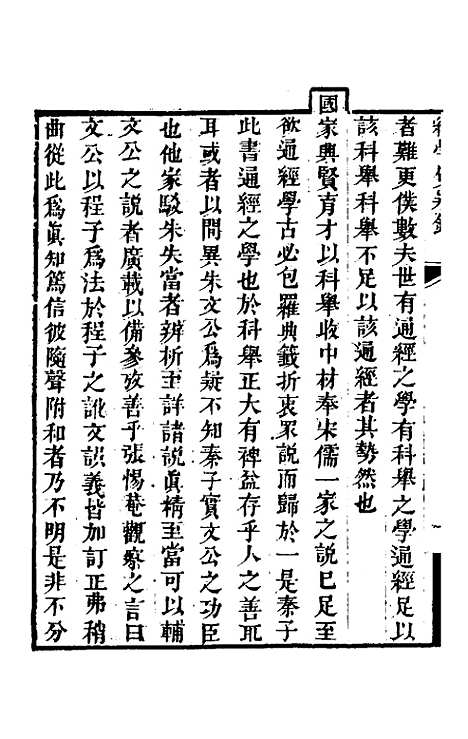 者難更僕數夫世有通經之學有科舉之學通經足以
該科舉科舉不足以該通經者其勢然也
國家興賢育才以科舉收中材奉宋儒一家之說已足至
欲通經學古必包羅典籤折衷眾說而歸於一是秦子
此書通經之學也於科舉正大有裨益存乎人之善取
耳或者以間異朱文公為疑不知秦子實文公之功臣
也他家駁朱失當者辨析至詳諸說眞精至當可以輔
文公之說者廣載以備參攷善乎張惕菴觀察之言曰
文公以程子爲法於程子之訛文誤義皆加訂正弗稍
曲從此爲眞知篤信彼隨聲附和者乃不明是非不分